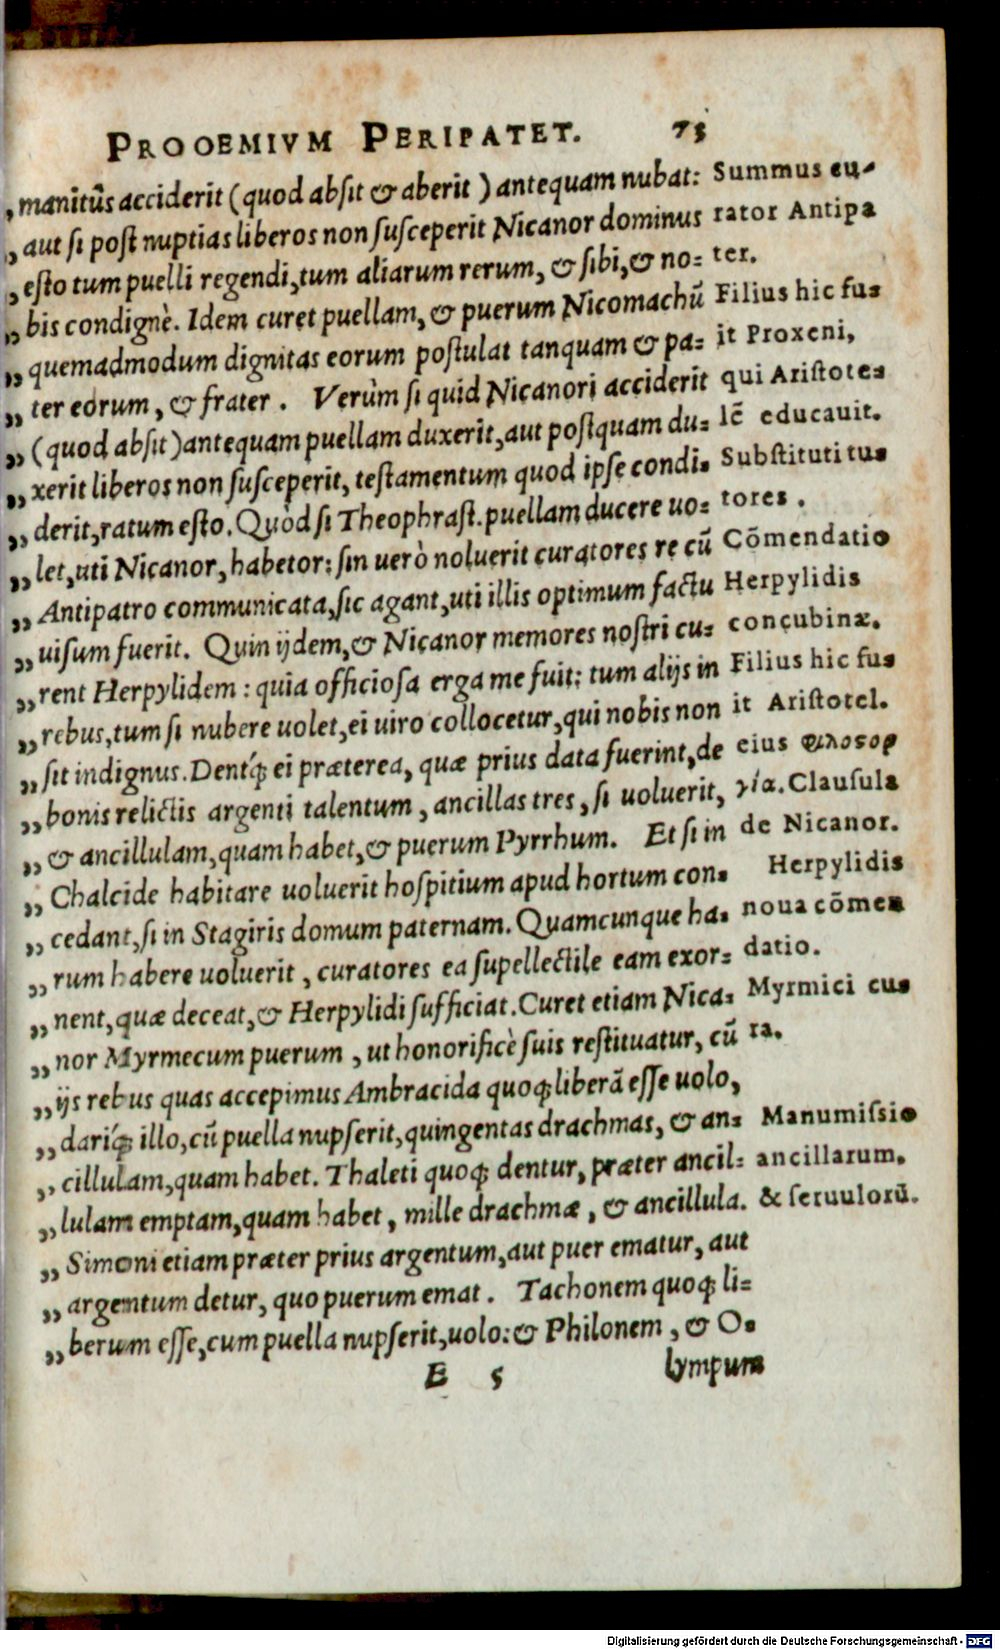 PROOEMIVM PERIPATET. 75
„ manitũs acciderit (quod absit & aberit) antequam nubat:
„ aut si post nuptias liberos non susceperit Nicanor dominus
„ esto tum puelli regendi, tum aliarum rerum, & sibi, & no-
„ bis condignè. Idem curet puellam, & puerum Nicomachũ
„ quemadmodum dignitas eorum postulat tanquam & pa-
„ ter eorum, & frater. Verùm si quid Nicanori acciderit
„ (quod absit) antequam puellam duxerit, aut postquam du-
„ xerit liberos non susceperit, testamentum quod ipse condi-
„ derit, ratum esto. Quòd si Theophrast. puellam ducere uo-
„ let, uti Nicanor, habetor: sin uerò noluerit curatores re cũ
„ Antipatro communicata, sic agant, uti illis optimum factu
„ uisum fuerit. Quin ijdem, & Nicanor memores nostri cu-
„ rent Herpylidem: quia officiosa erga me fuit: tum alijs in
„ rebus, tum si nubere uolet, ei uiro collocetur, qui nobis non
„ sit indignus. Dentq́; ei præterea, quæ prius data fuerint, de
„ bonis relictis argenti talentum, ancillas tres, si uoluerit,
„ & ancillulam, quam habet, & puerum Pyrrhum. Et si in
„ Chalcide habitare uoluerit hospitium apud hortum con-
„ cedant, si in Stagiris domum paternam. Quamcunque ha-
„ rum habere uoluerit, curatores ea supellectile eam exor-
„ nent, quæ deceat, & Herpylidi sufficiat. Curet etiam Nica-
„ nor Myrmecum puerum, ut honorificè suis restituatur, cũ
„ ijs rebus quas accepimus Ambracida quoq; liberã esse uolo,
„ dariq́; illo, cũ puella nupserit, quingentas drachmas, & an-
„ cillulam, quam habet. Thaleti quoq; dentur, præter ancil-
„ lulam emptam, quam habet, mille drachmæ, & ancillula.
„ Simoni etiam præter prius argentum, aut puer ematur, aut
„ argentum detur, quo puerum emat. Tachonem quoq; li-
„ berum esse, cum puella nupserit, uolo: & Philonem, & O-
E 5 lympum
Summus cu-
rator Antipa
ter.
Filius hic fu-
it Proxeni,
qui Aristote-
lẽ educauit.
Substituti tu-
tores.
Cõmendatio
Herpylidis
concubinæ.
Filius hic fu-
it Aristotel.
eius φιλοσορ
γία. Clausula
de Nicanor.
Herpylidis
noua cõmen
datio.
Myrmici cu-
ra.
Manumissio
ancillarum.
& seruulorũ.
Digitalisierung gefördert durch die Deutsche Forschungsgemeinschaft - DFG